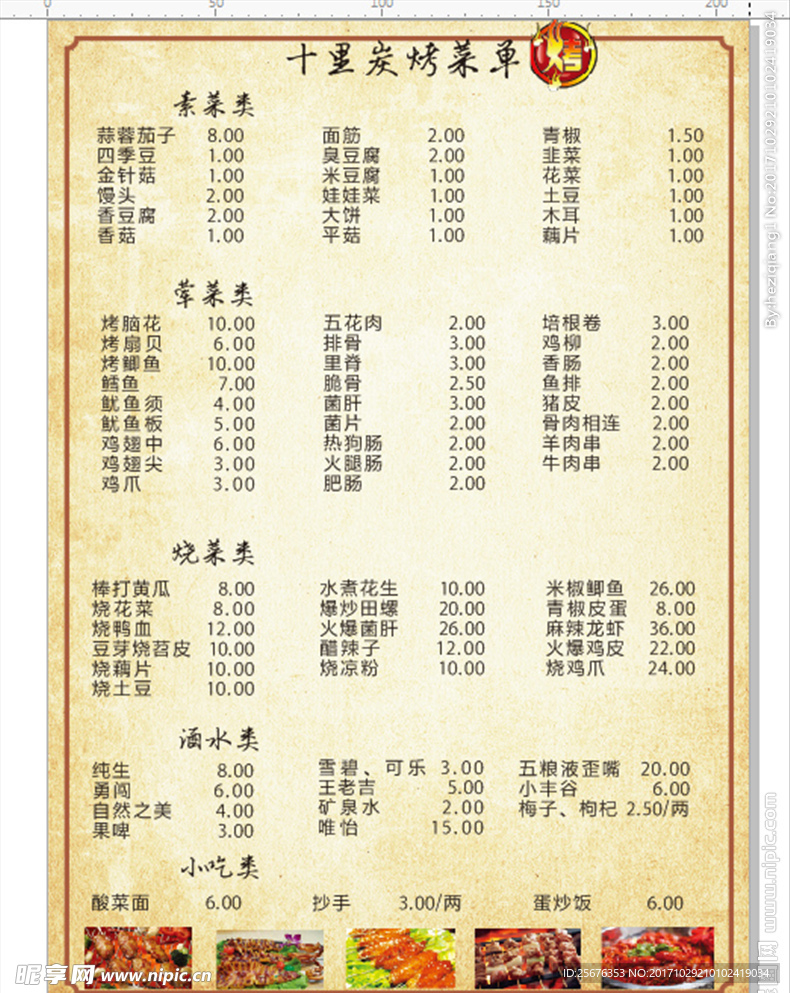 0 50 100 150 200
十里炭烤菜单 烤
素菜类
蒜蓉茄子 8.00 面筋 2.00 青椒 1.50
四季豆 1.00 臭豆腐 2.00 韭菜 1.00
金针菇 1.00 米豆腐 1.00 花菜 1.00
馒头 2.00 娃娃菜 1.00 土豆 1.00
香豆腐 2.00 大饼 1.00 木耳 1.00
香菇 1.00 平菇 1.00 藕片 1.00
荤菜类
烤脑花 10.00 五花肉 2.00 培根卷 3.00
烤扇贝 6.00 排骨 3.00 鸡柳 2.00
烤鲫鱼 10.00 里脊 3.00 香肠 2.00
鳕鱼 7.00 脆骨 2.50 鱼排 2.00
鱿鱼须 4.00 菌肝 3.00 猪皮 2.00
鱿鱼板 5.00 菌片 2.00 骨肉相连 2.00
鸡翅中 6.00 热狗肠 2.00 羊肉串 2.00
鸡翅尖 3.00 火腿肠 2.00 牛肉串 2.00
鸡爪 3.00 肥肠 2.00
烧菜类
棒打黄瓜 8.00 水煮花生 10.00 米椒鲫鱼 26.00
烧花菜 8.00 爆炒田螺 20.00 青椒皮蛋 8.00
烧鸭血 12.00 火爆菌肝 26.00 麻辣龙虾 36.00
豆芽烧苕皮 10.00 醋辣子 12.00 火爆鸡皮 22.00
烧藕片 10.00 烧凉粉 10.00 烧鸡爪 24.00
烧土豆 10.00
酒水类
纯生 8.00 雪碧、可乐 3.00 五粮液歪嘴 20.00
勇闯 6.00 王老吉 5.00 小丰谷 6.00
自然之美 4.00 矿泉水 2.00 梅子、枸杞 2.50/两
果啤 3.00 唯怡 15.00
小吃类
酸菜面 6.00 抄手 3.00/两 蛋炒饭 6.00
昵享网 www.nipic.cn
ID:25676353 NO:20171029210102419034
By:heziqiang1 No:20171029210102419034
www.nipic.com